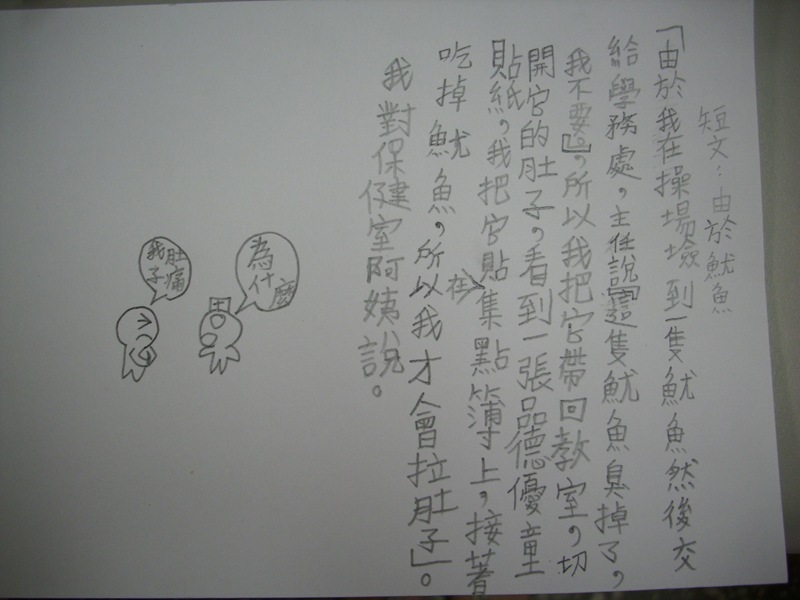 短文：由於魷魚
「由於我在操場撿到一隻魷魚然後交
給學務處，主任說這隻魷魚臭掉了，
我不要』，所以我把它帶回教室，切
開它的肚子，看到一張品德優童
貼紙，我把它貼在集點簿上，接著
吃掉魷魚，所以我才會拉肚子」。
我對保健室阿姨說。
為什麼
我肚子痛